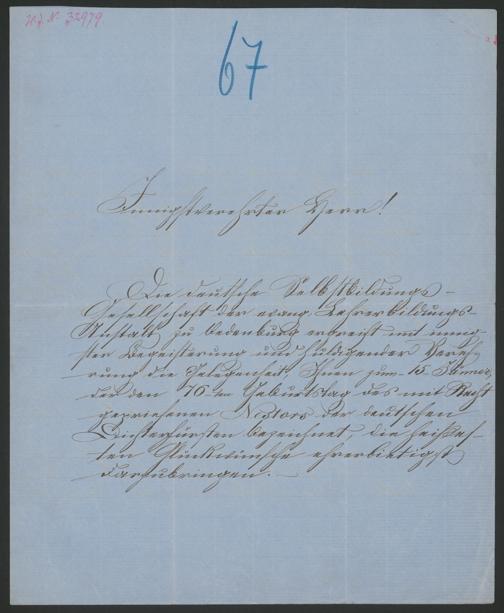 H.I.N. 32979
67
Innigstverehrter Herr!
Die deutsche Selbstbildungs-
Gesellschaft der evang. Lehrerbildungs-
Anstalt zu Oedenburg ergreift mit innig-
ster Begeisterung und huldigender Vereh-
rung die Gelegenheit Ihnen zum 15. Jänner,
der den 76-ten Geburtstag des mit Recht
gepriesenen Nestors der deutschen
Dichterfürsten bezeichnet, die heißes-
ten Glückwünsche ehrerbietigst
darzubringen. —